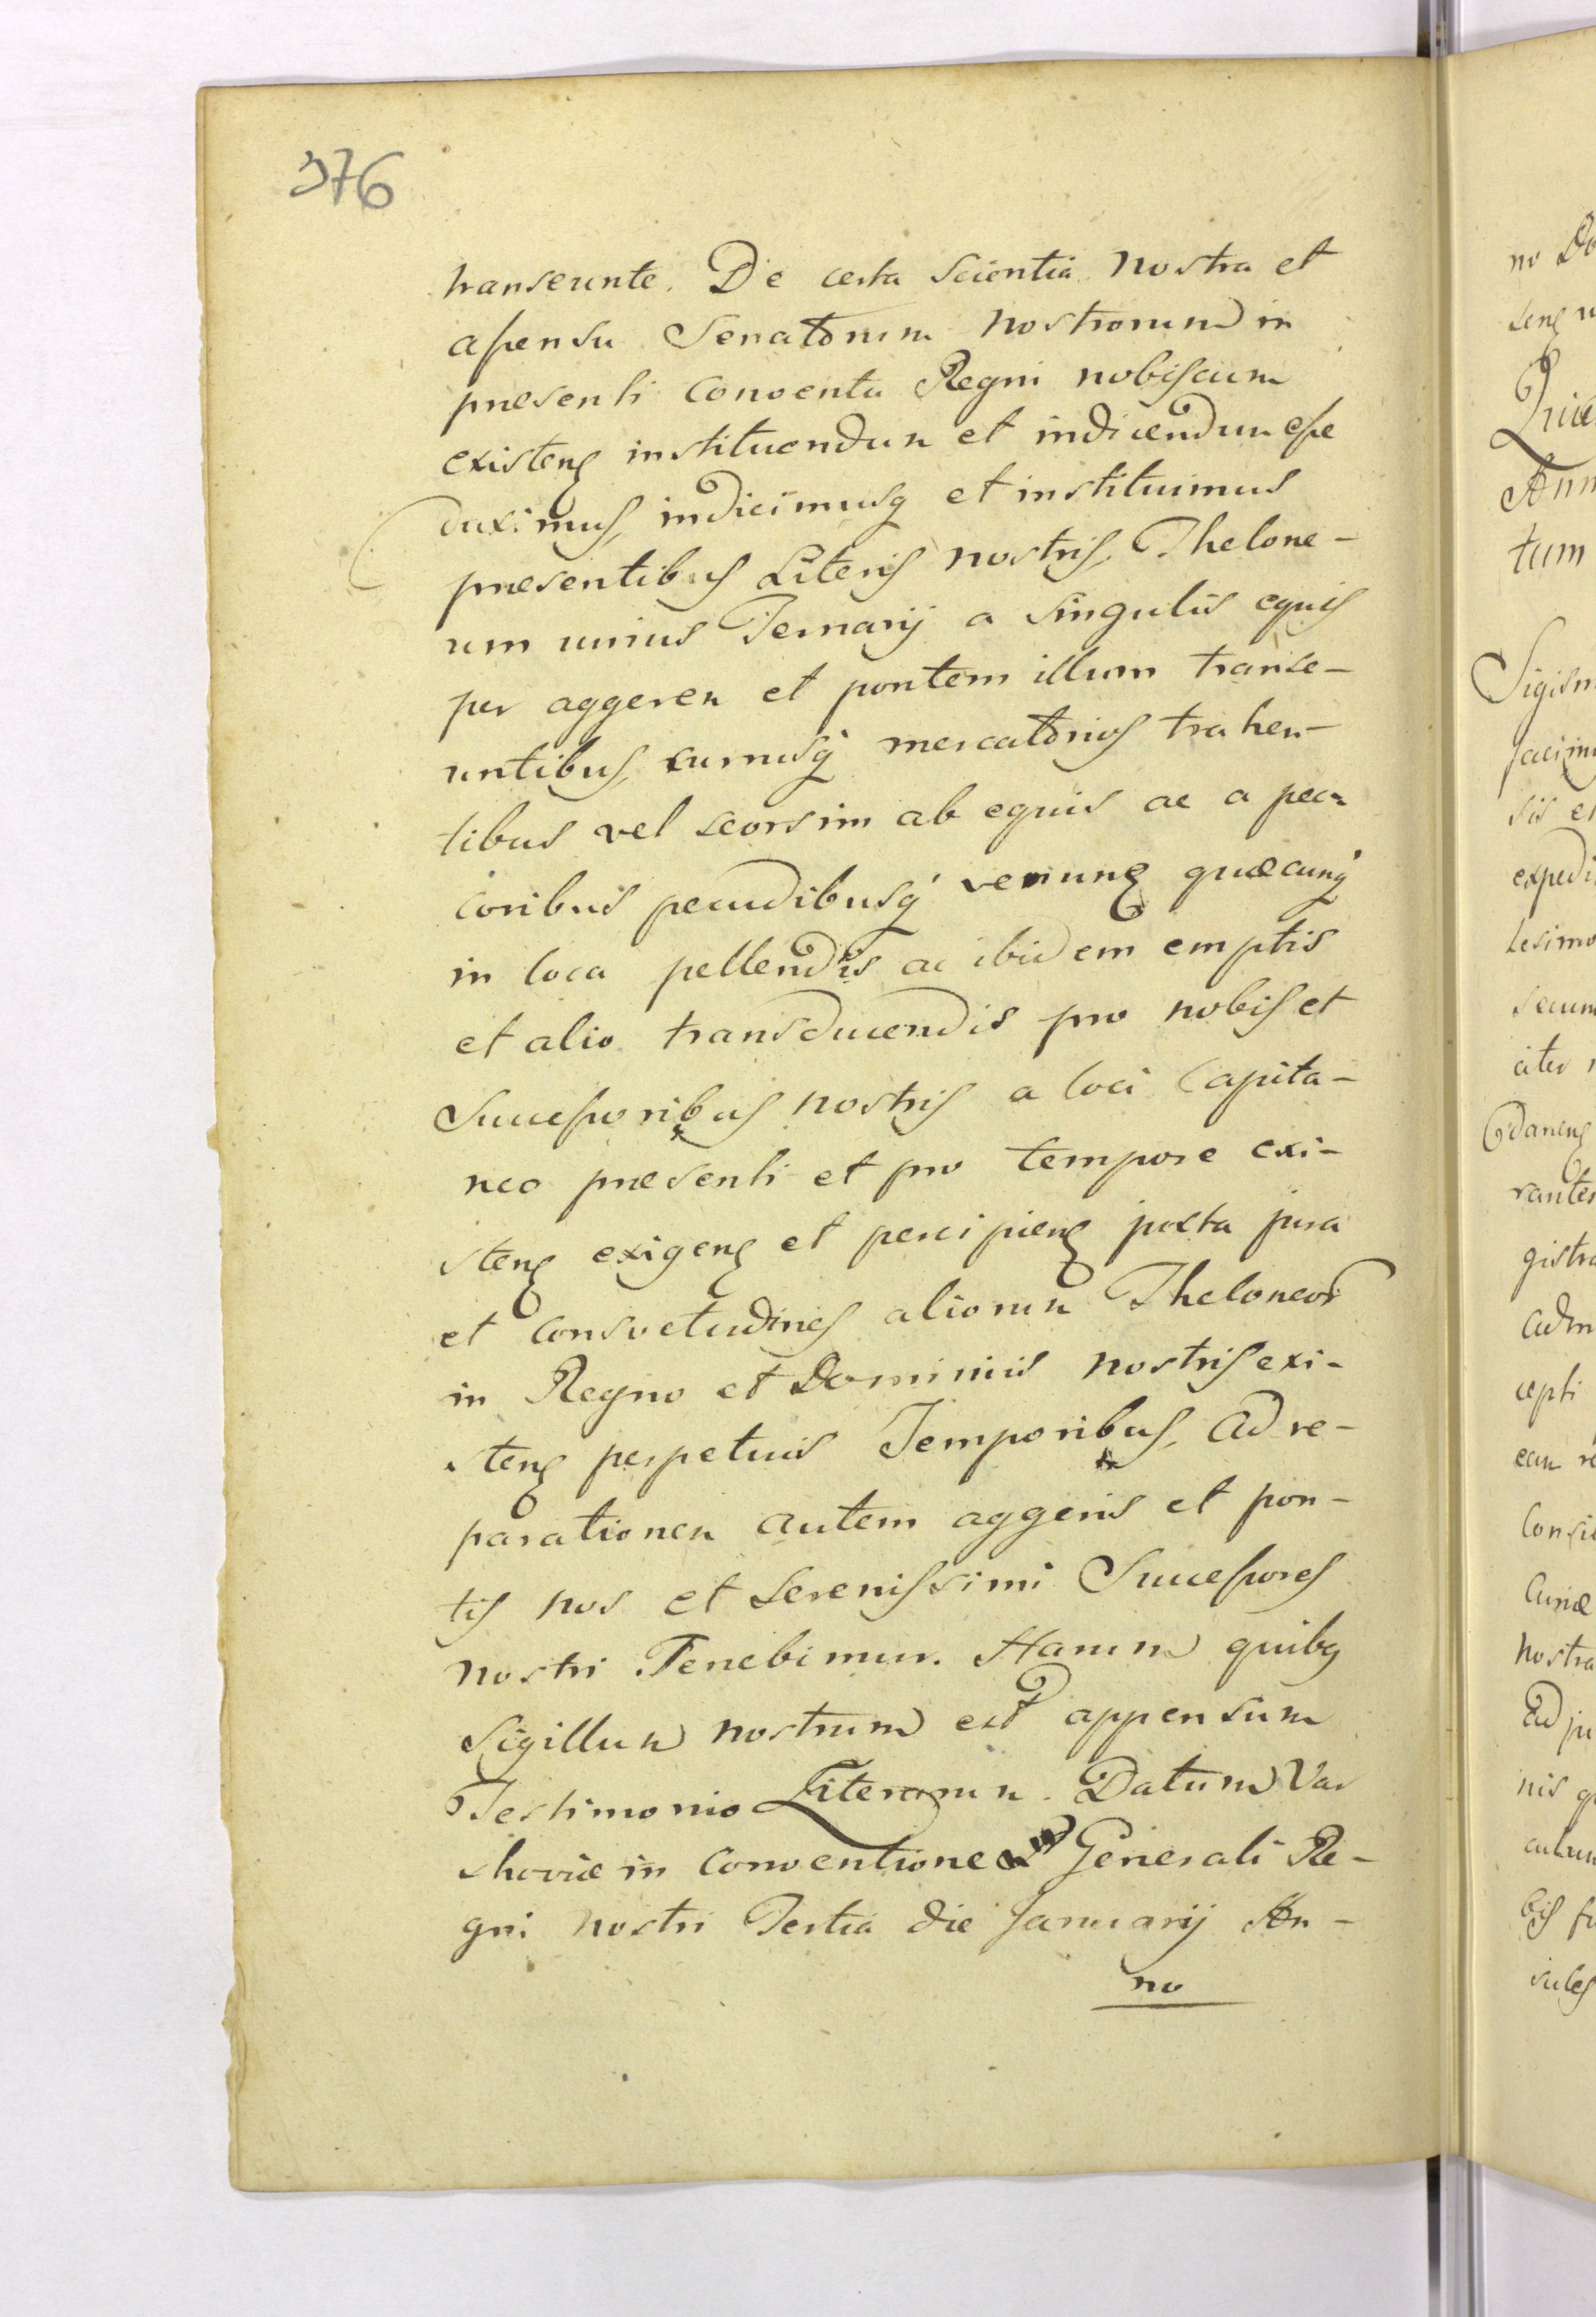 376
transeunte. De certa scientia nostra et
assensu Senatorum nostrorum in
præsenti Conventu Regni nobiscum
existenꝫ instituendum et indicendum esse
duximus, indicimusq et instituimus
præsentibus Literis nostris, Thelone-
um unius Ternarij a singulis equis
per aggerem et pontem illum transe-
untibus, currusq mercatorios trahen-
tibus vel seorsim ab equis ac a pec-
coribus pecudibusq venunꝫ quæcunq
in loca pellendis ac ibidem emptis
et alio transducendis pro nobis et
Successoribus nostris a loci Capita-
neo præsenti et pro tempore exi-
stenꝫ exigenꝫ et percipienꝫ juxta jura
et Consvetudines aliorum Theloneor
in Regno et Dominiis nostris exi-
stenꝫ perpetuis Temporibus, Ad re-
parationem autem aggeris et pon-
tis nos et Serenissimi Successores
nostri Tenebimur. Harum quibꝫ
Sigillum nostrum est appensum
Testimonio Literarum. Datum Var
shoviæ in Conventione Generali Re-
gni nostri Tertia die Januarij An-
no
no Do
senꝫ
Trice
Ann
tum
Sigism
sis
expedi
lesimo
secun
citer
danenꝫ
rantes
gistra
Adm
cepti
eam re
Consi
Curiæ
nostra
Ad ju
nis q
bis fu